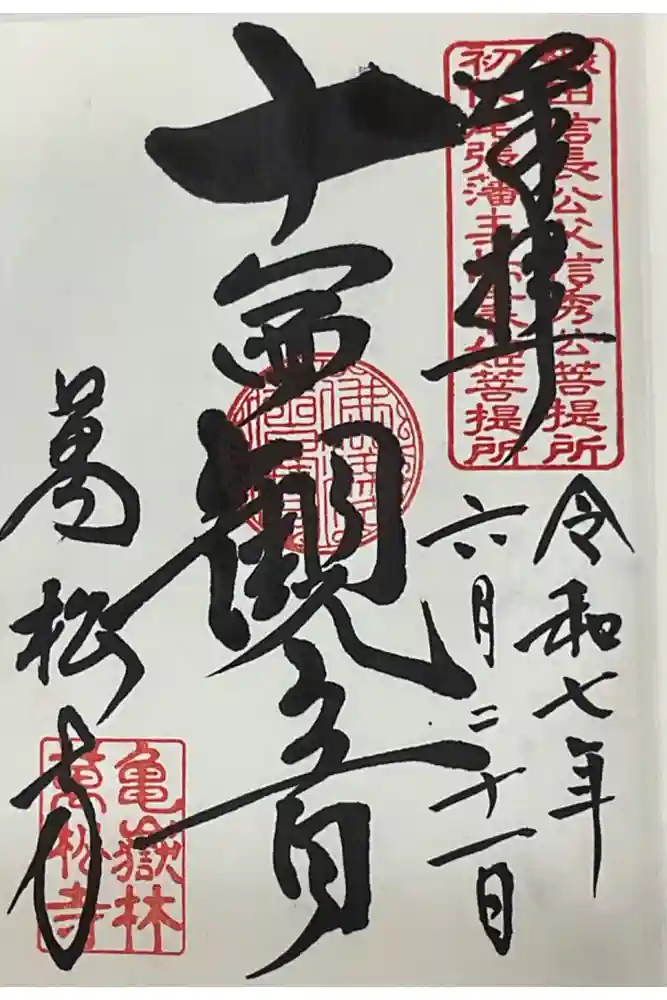 織田信長公父信秀公菩提所
初代尾張藩主春姫菩提所
奉拝
令和七年
六月二十一日
十一面観音
萬松寺
亀嶽林
萬松寺